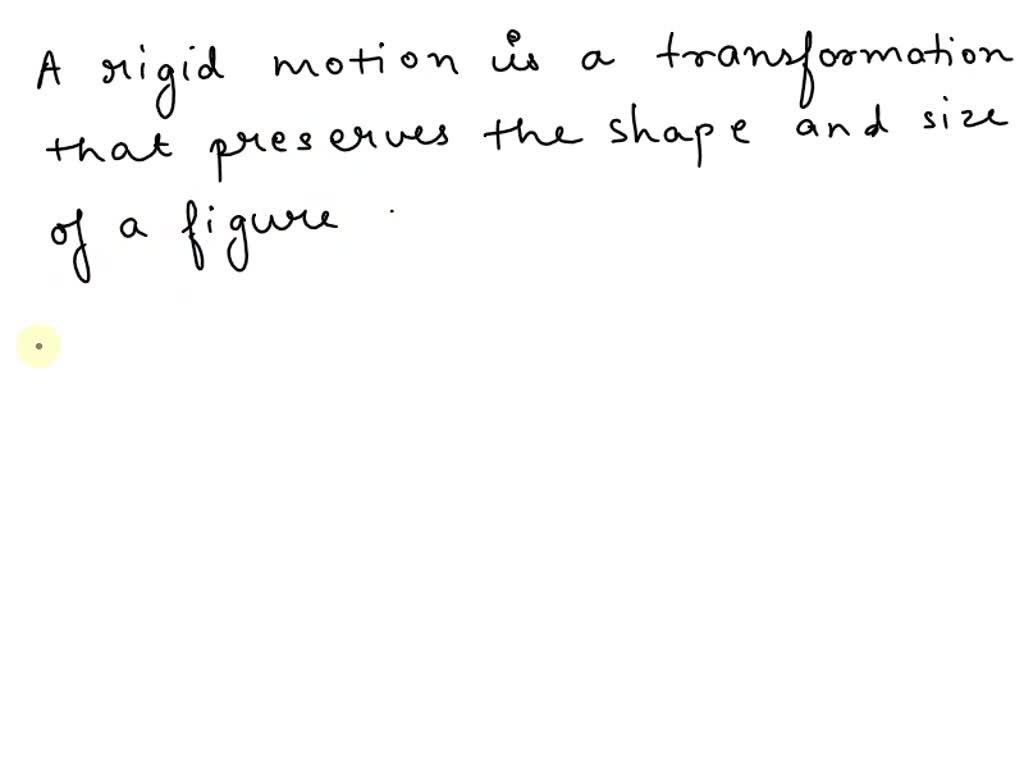 A rigid motion is a transformation
that preserves the shape and size
of a figure.